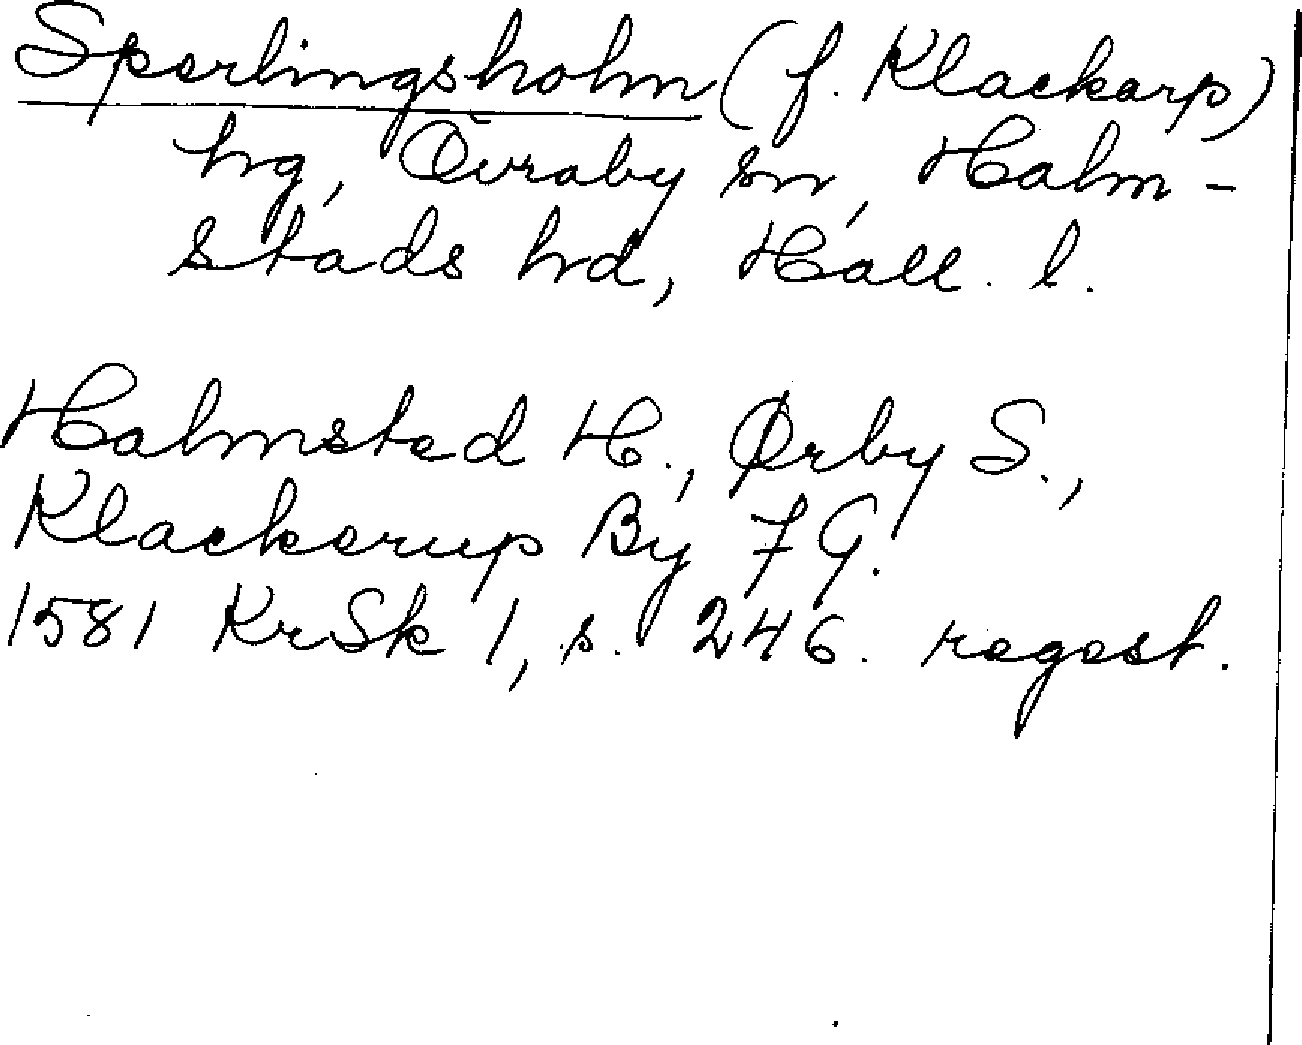 Sperlingsholm (f. Klackarp)
hg, Övraby sn, Halm-
stads hd, Hall. l.
Halmsted H., Ørby S.,
Klackerup By 7 G.
1581 KrSk 1, s. 246. regest.